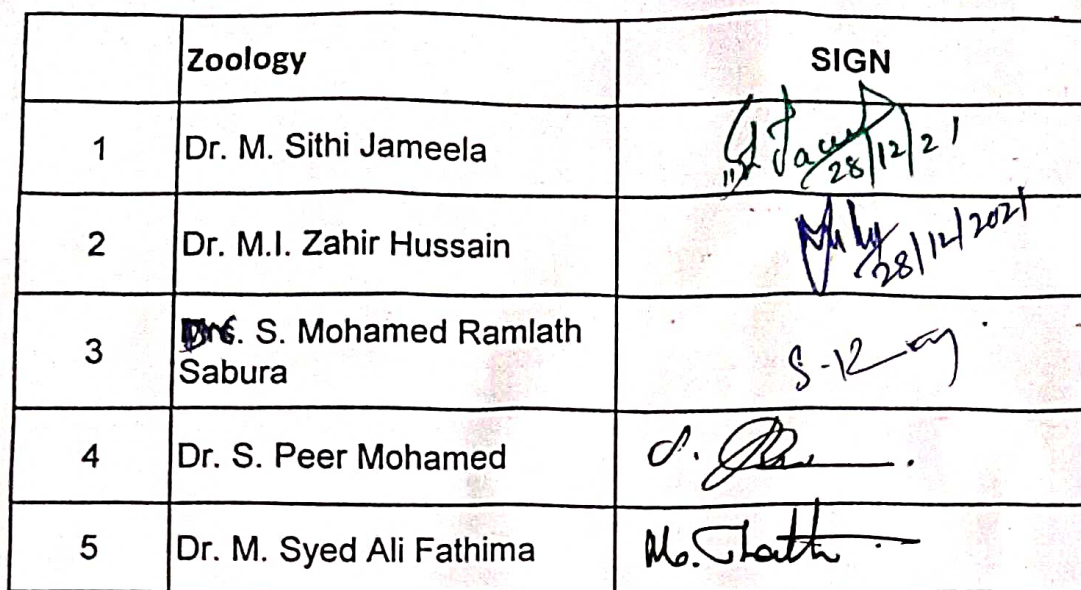 Zoology SIGN
1 Dr. M. Sithi Jameela
28/12/21
2 Dr. M.I. Zahir Hussain
28/12/2021
3 S. Mohamed Ramlath
Sabura
4 Dr. S. Peer Mohamed S.
5 Dr. M. Syed Ali Fathima